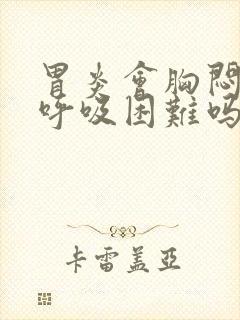 胃炎會胸悶
呼吸困難嗎
卡雷盖亞